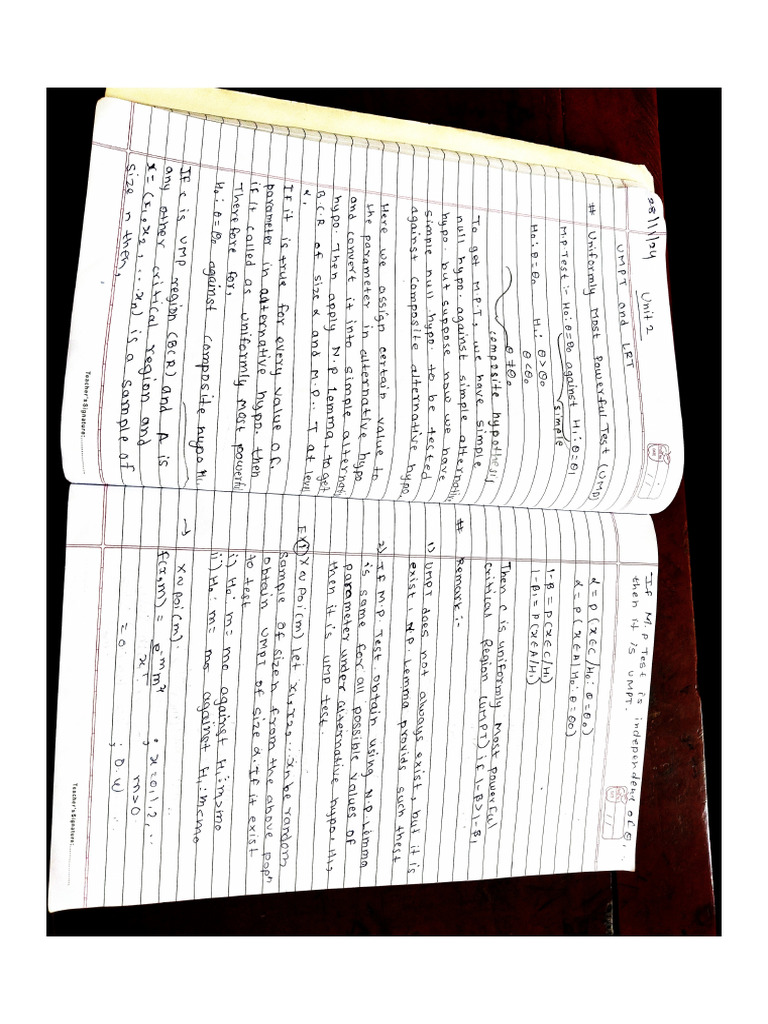 28/11/24
Unit 2
UMPT and LRT
# Uniformly Most Powerful Test (UMP)
M.P. Test :- H0: θ = θ0 against H1: θ = θ1
simple
H0: θ = θ0 H1: θ > θ0
θ < θ0
θ ≠ θ0
composite hypothesis
To get M.P.T, we have simple
null hypo. against simple alternativ
hypo. but suppose now we have
simple null hypo. to be tested
against composite alternative hypo.
Here we assign certain value to
the parameter in alternative hypo
and convert it into simple alternati
hypo. Then apply N.P Lemma, to get
B.C.R of size α and M.P. T at level
α.
If it is true for every value of
parameter in alternative hypo. then
it called as uniformly most powerful
Therefore for,
H0: θ = θ0 against composite hypo H1.
If c is UMP region (BCR) and A is
any other critical region and
x = (x1, x2, ... xn) is a sample of
size n then,
Teacher's Signature:
If M.P Test is independent of θ1
then it is UMPT.
α = P (x∈C/H0: θ = θ0)
α = P (x∈A/H0: θ = θ0)
1-β = P(x∈C/H1)
1-β1 = P(x∈A/H1)
Then c is uniformly most powerful
critical Region (UMPT) if 1-β > 1-β1
# Remark :-
1) UMPT does not always exist, but it is
exist, N.P. Lemma provids such thest
2) If M.P. Test obtain using N.P. Lemma
is same for all possible values of
parameter under alternative hypo, H1,
then it is UMP test.
Ex 1) X ~ Poi(m) let x1, x2, ... xn be random
sample of size n from the above popn
obtain UMPT of size α. If it exist
to test
i) H0: m = m0 against H1: m > m0
ii) H0: m = m0 against H1: m < m0
→ X ~ Poi(m).
f(x,m) = e^-m m^x / x! ; x = 0, 1, 2, ...
m > 0
= 0. ; o.w
Teacher's Signature: